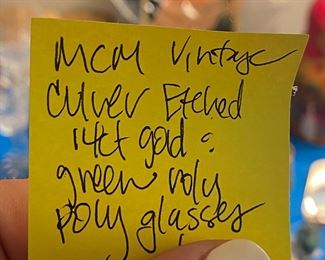 MCM Vintage
Culver Etched
14ct gold &
green roly
poly glasses